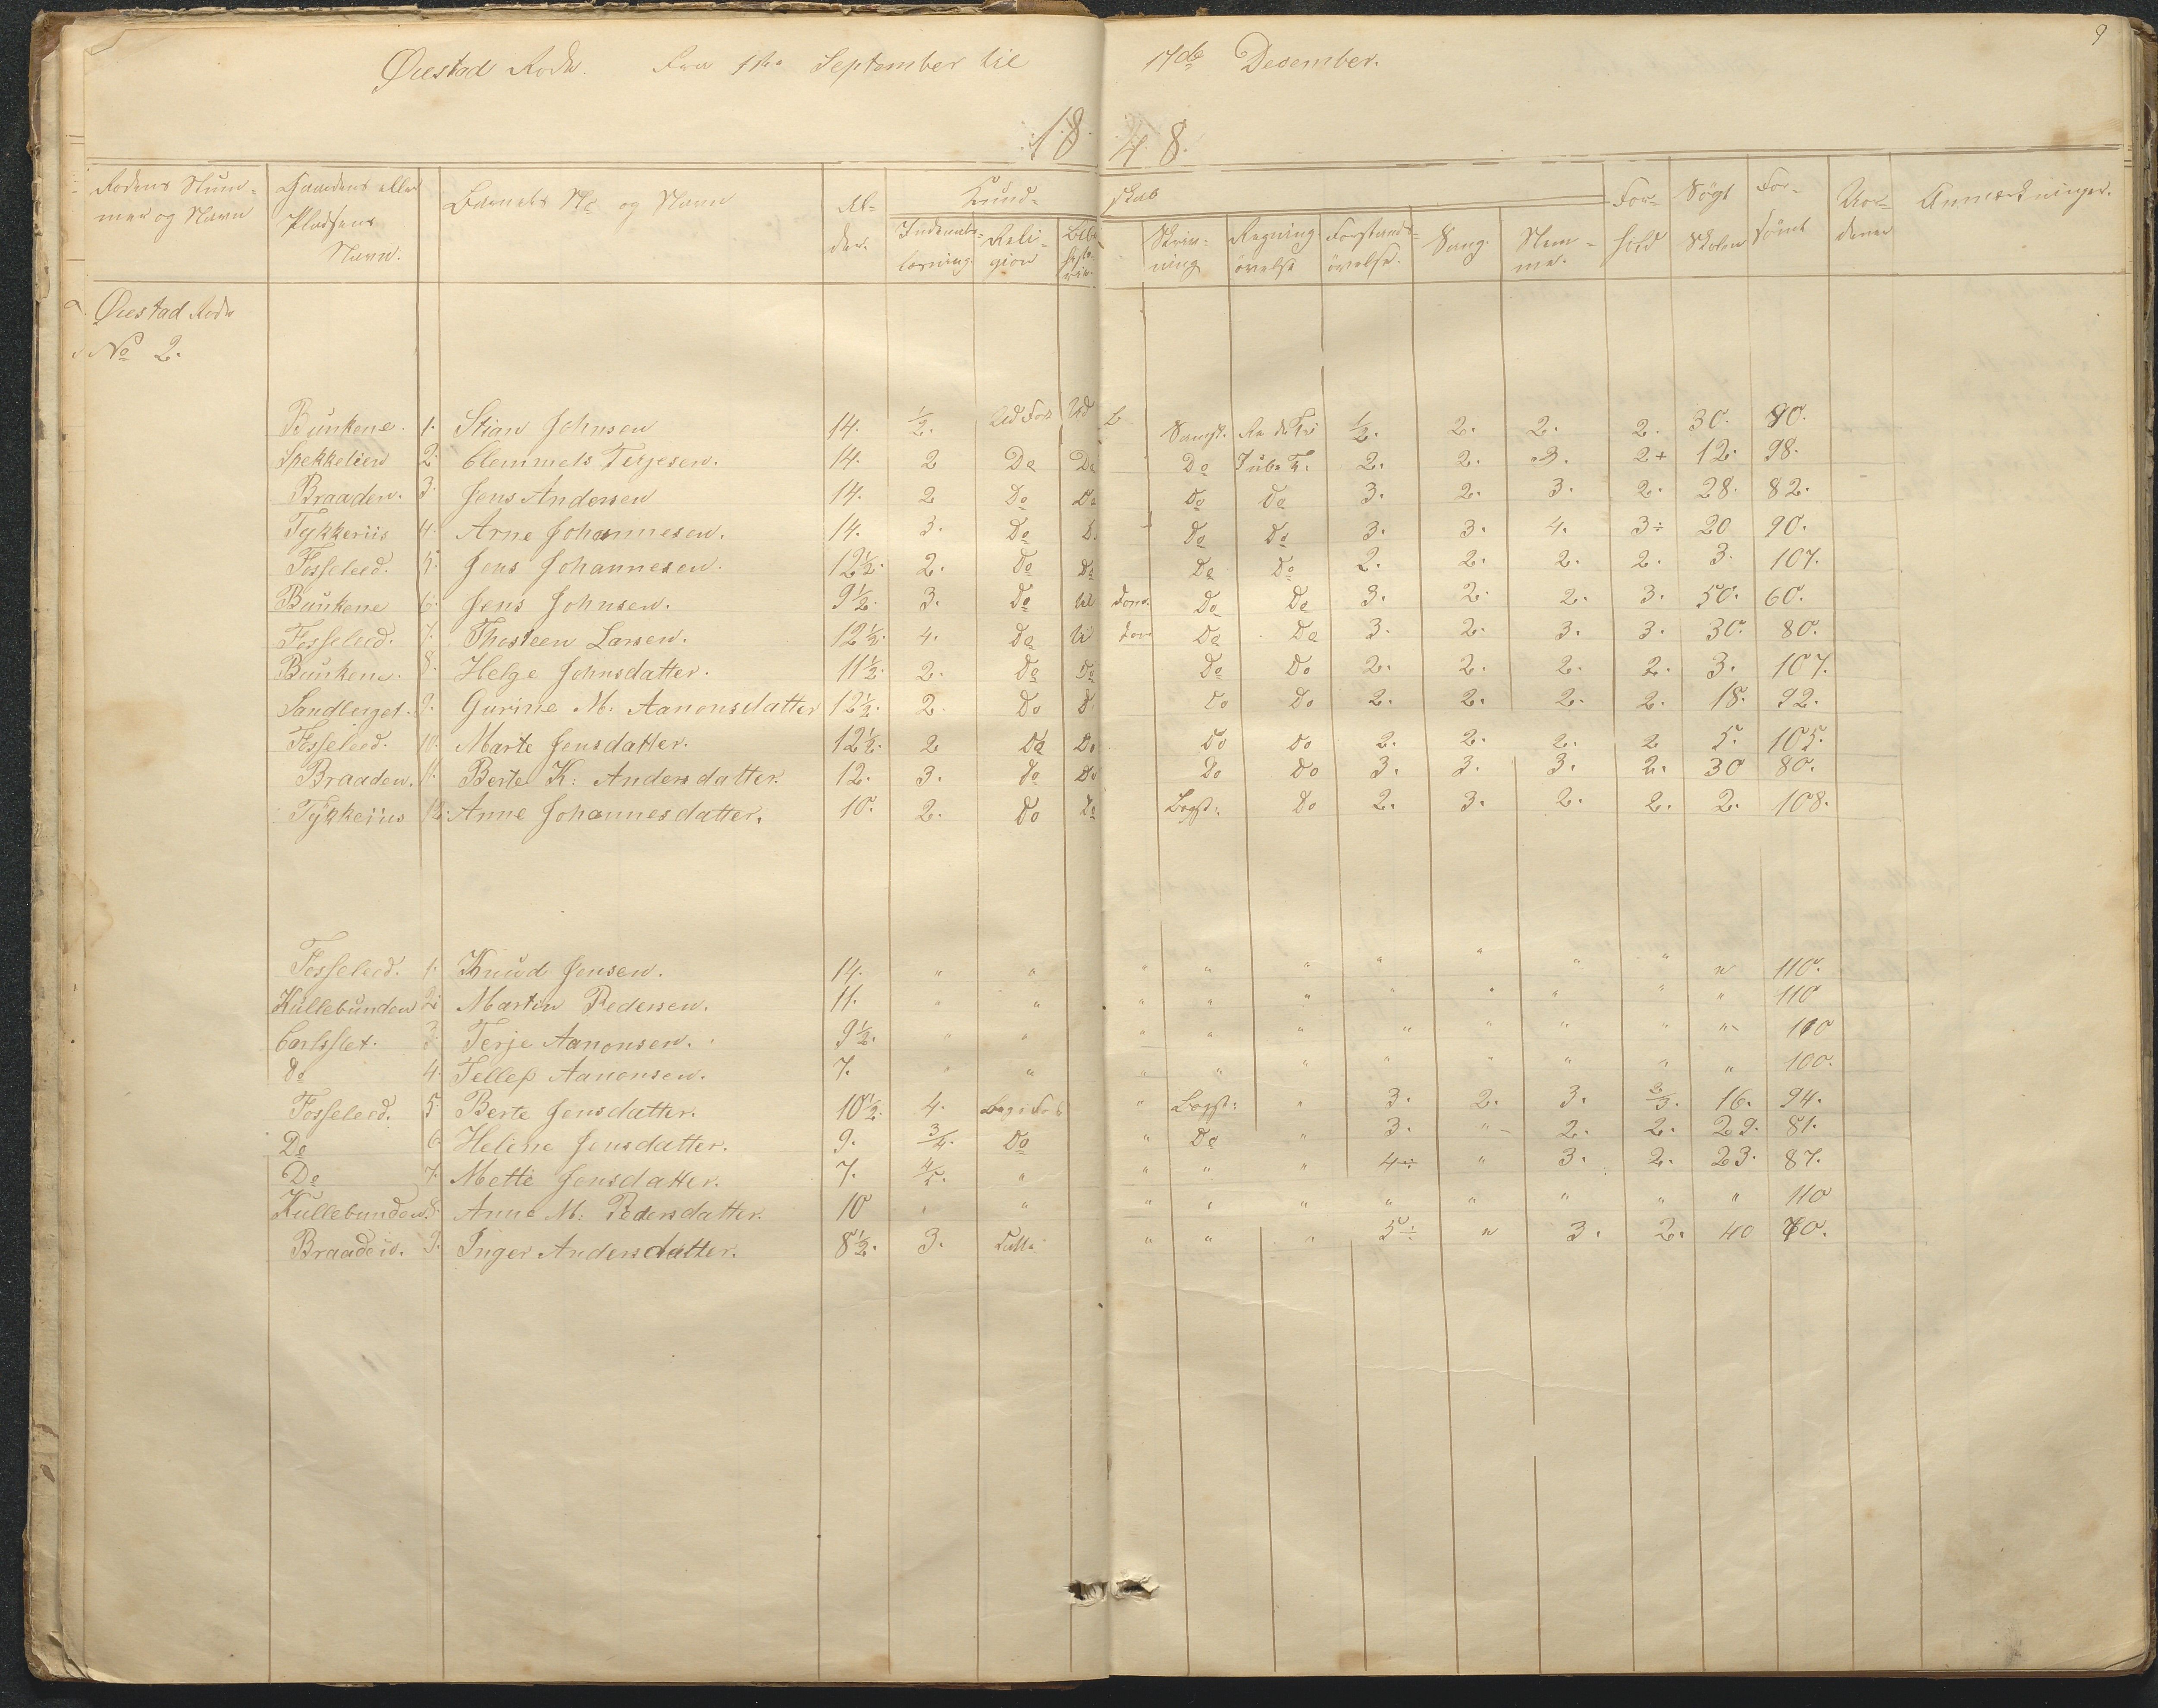 9
Øiestad Rode. Fra 1ste September til 17de Desember.
18 48.
Rodens Num- Gaardens eller Barnets No og Navn Al- Kund- skab For- Søgt For- Vor- Anmærkninger.
mer og Navn Pladsens Navn. der. Indenads- læsning. Reli- gion Skriv- ning Regning øvelse Forstands- øvelse. Sang. Nem- me. hold Skolen sømt deres
Øiestad Rode
No 2.
Bunkene. 1. Stian Johnsen 14. ½. Ud Fork Ud b ½. 2. 2. 2. 30. 80.
Spekkelien 2. Clemmets Terjesen. 14. 2 Do Do Do 2. 2. 3. 2+ 12. 98.
Braaden. 3. Jens Andersen 14. 2 Do Do Do Do 3. 2. 3. 2. 28. 82.
Tykkeriis 4. Arne Johannesen. 14. 3. Do D Do Do 3. 3. 4. 3÷ 20 90.
Fosseleed. 5. Jens Johannesen. 12½. 2. Do Do Do Do 2. 2. 2. 2. 3. 107.
Bunkene 6. Jens Johnsen. 9½. 3. Do Do Do 3. 2. 2. 3. 50. 60.
Fosseleed. 7. Thosteen Larsen. 12½. 4. Do Do Do 3. 2. 3. 3. 30. 80.
Bunkene. 8. Helge Johnsdatter. 11½. 2. Do Do Do Do 2. 2. 2. 2. 3. 107.
Sandberget. 9. Gurine M. Aanonsdatter 12½. 2. Do D Do Do 2. 2. 2. 2. 18. 92.
Fosseleed. 10. Marte Jensdatter. 12½. 2 Do Do Do Do 2. 2. 2. 2 5. 105.
Braaden. 11. Berte K: Andersdatter. 12. 3. Do Do Do Do 3. 3. 3. 2. 30 80.
Tykkeriis 12. Anne Johannesdatter. 10. 2. Do Do Bogst: Do 2. 3. 2. 2. 2. 108.
Fosseleed. 1. Knud Jensen. 14. " " " " " " " " " " 110.
Kullebunden 2. Martin Pedersen. 11. " " " " " " " " " " 110
Carlsslet. 3. Terje Aanonsen. 9½. " " " " " " " " " " 110
Do 4. Tellef Aanonsen. 7. " " " " " " " " " " 100.
Fosseleed. 5. Berte Jensdatter. 10½. 4. " Bogst: " 3. 2. 3. 2/3. 16. 94.
Do 6. Heline Jensdatter. 9. 3/4. Do " Do " 3. " 2. 2. 29. 81.
Do 7. Mette Jensdatter. 7. 4/5. " " " " 4÷ " 3. 2. 23. 87.
Kullebunden. 8. Anne M: Pedersdatter. 10 " " " " " " " " " " 110
Braaden. 9. Inger Andersdatter. 8½. 3. " " " 5÷ " 3. 2. 40 70.